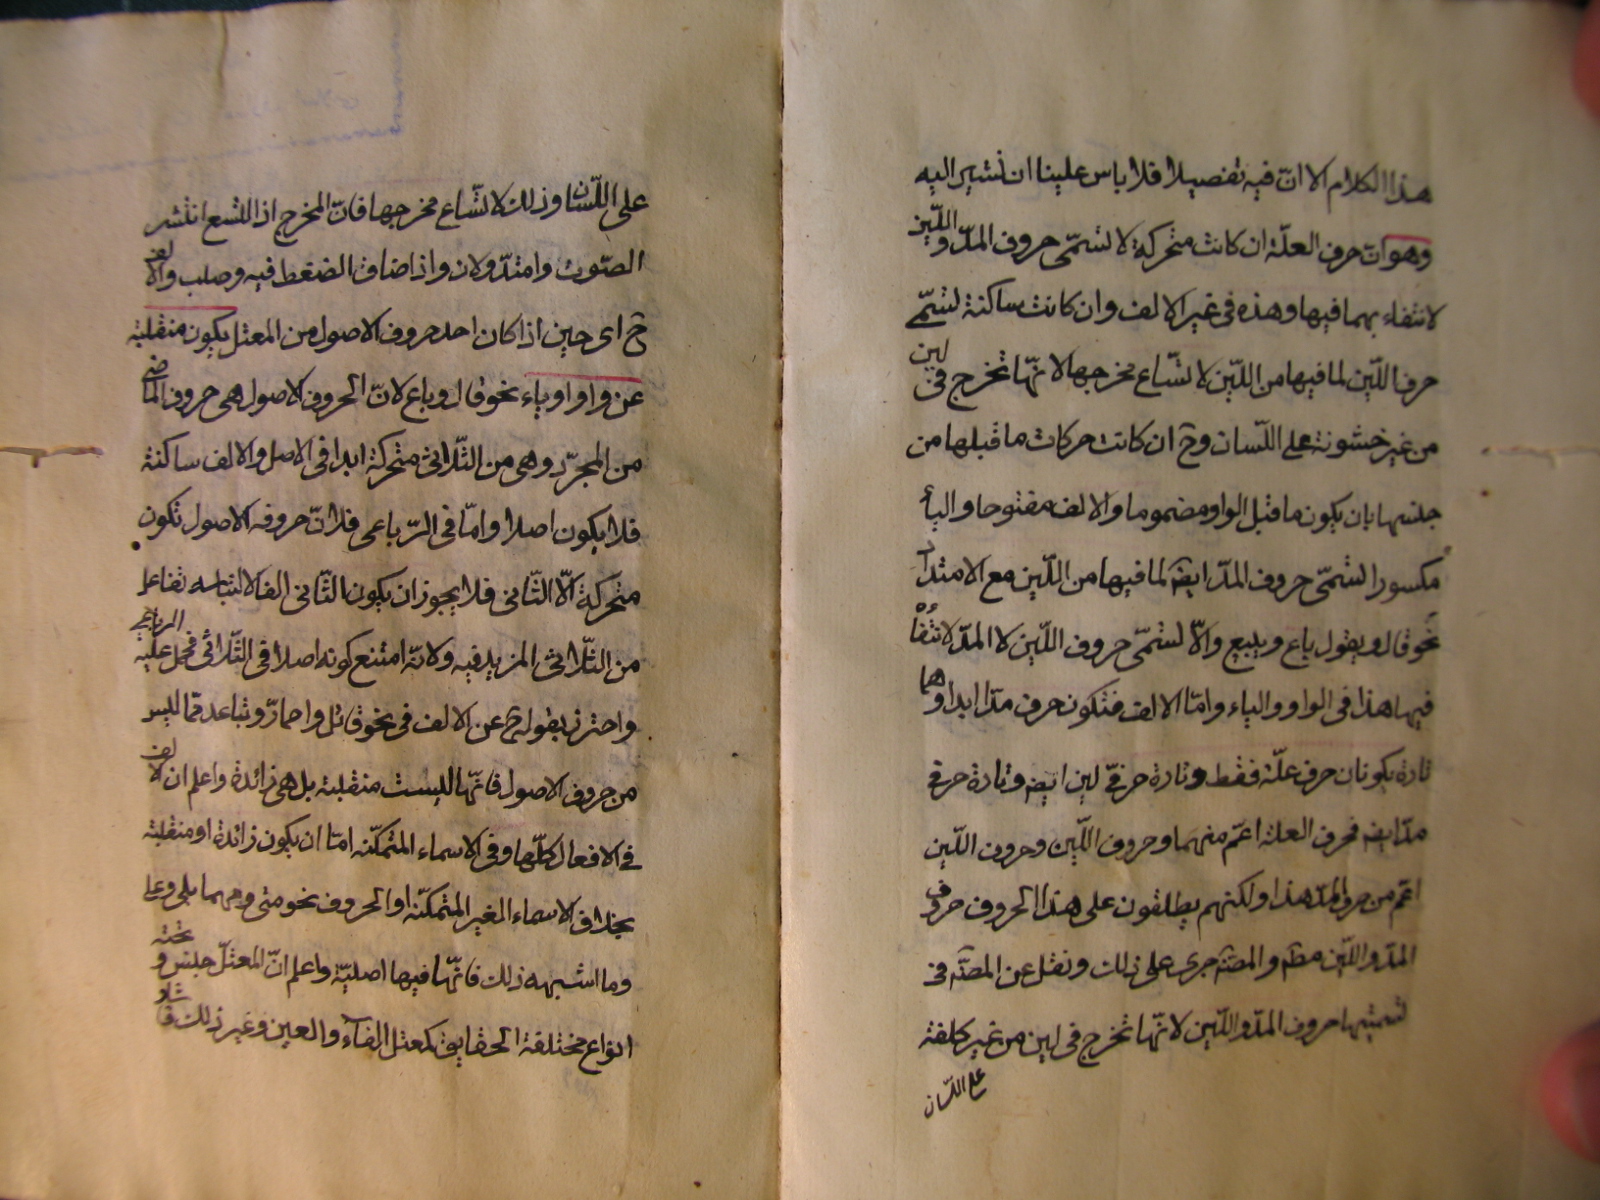 هذا الكلام الا انّ فيه تفصيلا فلا باس علينا ان نشير اليه
وهو انّ حرف العلّة ان كانت متحركة لا تسمّى حروف المدّ واللّين
لانتفاء بهما فيها وهذه فى غير الالف وان كانت ساكنة تسمّى
حرف اللّين لما فيها من اللّين لاتّساع مخرجها لانّها تخرج فى لين
من غير خشونة على اللّسان وح ان كانت حركات ما قبلها من
جنسها بان يكون ما قبل الواو مضموما والالف مفتوحا والياء
مكسورا تسمّى حروف المدّ ايضه لما فيها من اللّين مع الامتداد
نحو قال ويقول باع ويبيع والاّ تسمّى حروف اللّين لا المدّ لانتفائه
فيها هذا فى الواو والياء وامّا الالف فتكون حرف مدّ ابدا وهما
تارة يكونان حرف علّة فقط وتارة حرفى لين ايضه وتارة حرفى
مدّ ايضه فحرف العلة اعمّ منهما وحروف اللّين وحروف اللّين
اعمّ من حرف المدّ هذا ولكنهم يطلقون على هذا الحروف حروف
المدّ واللّين مطه والمصنّه جرى على ذلك ونقل عن المصنّه فى
تسميتها حروف المدّ واللّين لانّها تخرج فى لين من غير كلفة
على اللّسان
على اللّسان وذلك لاتّساع مخرجها فانّ المخرج اذا اتسع انتشر
الصّوت وامتدّ ولان واذا ضاق انضغط فيه وصلب والالف
ح اى حين اذا كان احد حروف الاصول من المعتل يكون منقلبة
عن واو او ياء نحو قال وباع لانّ الحروف الاصول هى حروف الماضى
من المجرّد وهى من الثّلاثى متحركة ابدا فى الاصل والالف ساكنة
فلا يكون اصلا وامّا فى الرّباعى فلانّ حروفه الاصول تكون
متحركة الاّ الثّانى فلا يجوز ان يكون الثّانى الفا لالتباسه تفاعل
من الثّلاثى المزيد فيه ولانّه امتنع كونه اصلا فى الثّلاثى فحمل عليه الرباعى
واحترز بقوله ح عن الالف فى نحو قاتل واحمارّ وتباعد ممّا ليس
من حروف الاصول فانّها ليست منقلبة بل هى زائدة واعلم ان الالف
فى الافعال كلّها وفى الاسماء المتمكّنة امّا ان يكون زائدة او منقلبة
بخلاف الاسماء الغير المتمكّنة او الحروف نحو متى ومهما بلى وعلى
وما اشبهه ذلك فانّها فيها اصليّة واعلم انّ المعتلّ جنس وتحته
انواع مختلفة الحقايق كمعتل الفاء والعين وغير ذلك